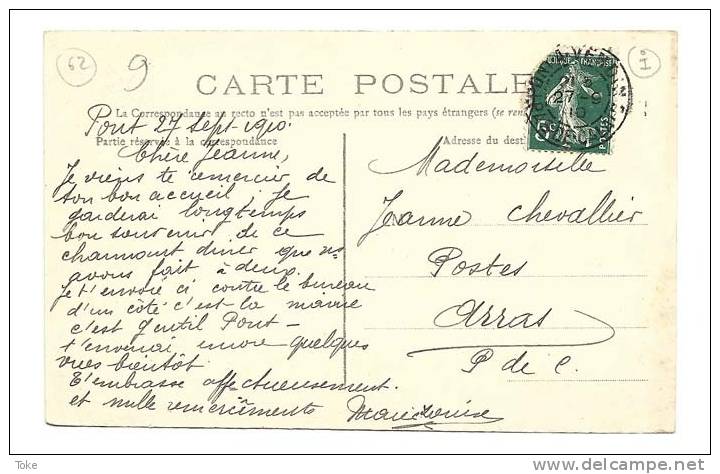 62
9
CARTE POSTALE
La Correspondance au recto n'est pas acceptée par tous les pays étrangers (se ren
Pont 27 Sept. 1910.
Partie réservée à la correspondance
Adresse du dest
Chère Jeanne,
Je viens te remercier de
ton bon accueil, je
garderai longtemps
bon souvenir de ce
charmant dîner que ns
avons fait à deux.
Je t'envoie ci contre le bureau
d'un côté c'est la mairie
c'est gentil Pont -
t'enverrai encore quelques
vues bientôt
T'embrasse affectueusement.
et mille remerciements
Marie Louise
Mademoiselle
Jeanne Chevallier
Postes
Arras
P de C.
REPUBLIQUE FRANÇAISE
POSTES
27 - 9
10
Toke
delcampe.net